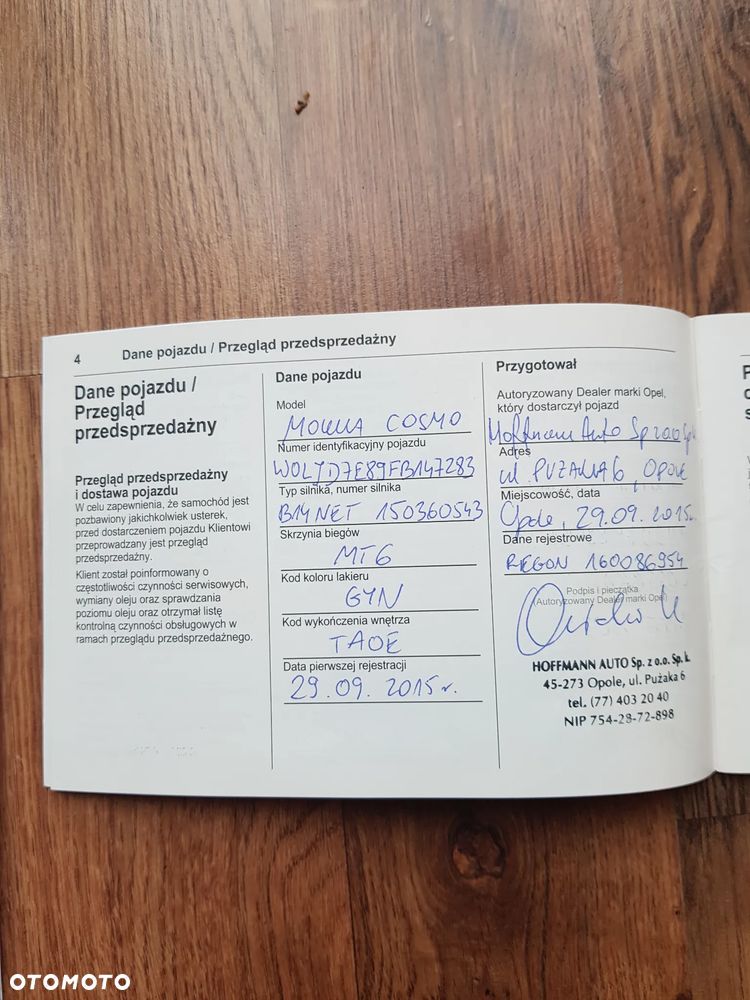 4 Dane pojazdu / Przegląd przedsprzedażny
Dane pojazdu /
Przegląd
przedsprzedażny
Przegląd przedsprzedażny
i dostawa pojazdu
W celu zapewnienia, że samochód jest
pozbawiony jakichkolwiek usterek,
przed dostarczeniem pojazdu Klientowi
przeprowadzany jest przegląd
przedsprzedażny.
Klient został poinformowany o
częstotliwości czynności serwisowych,
wymiany oleju oraz sprawdzania
poziomu oleju oraz otrzymał listę
kontrolną czynności obsługowych w
ramach przeglądu przedsprzedażnego.
Dane pojazdu
Model
MOKKA COSMO
Numer identyfikacyjny pojazdu
W0LJD7E89FB147283
Typ silnika, numer silnika
B14NET 150360543
Skrzynia biegów
MT6
Kod koloru lakieru
GYN
Kod wykończenia wnętrza
TAOE
Data pierwszej rejestracji
29.09.2015r.
Przygotował
Autoryzowany Dealer marki Opel,
który dostarczył pojazd
Hoffmann Auto Sp zoo Sp k
Adres
ul. PUŻAKA 6, OPOLE
Miejscowość, data
Opole, 29.09.2015r.
Dane rejestrowe
REGON 160086954
Podpis i pieczątka
(Autoryzowany Dealer marki Opel)
HOFFMANN AUTO Sp. z o.o. Sp.k.
45-273 Opole, ul. Pużaka 6
tel. (77) 403 20 40
NIP 754-28-72-898
OTOMOTO